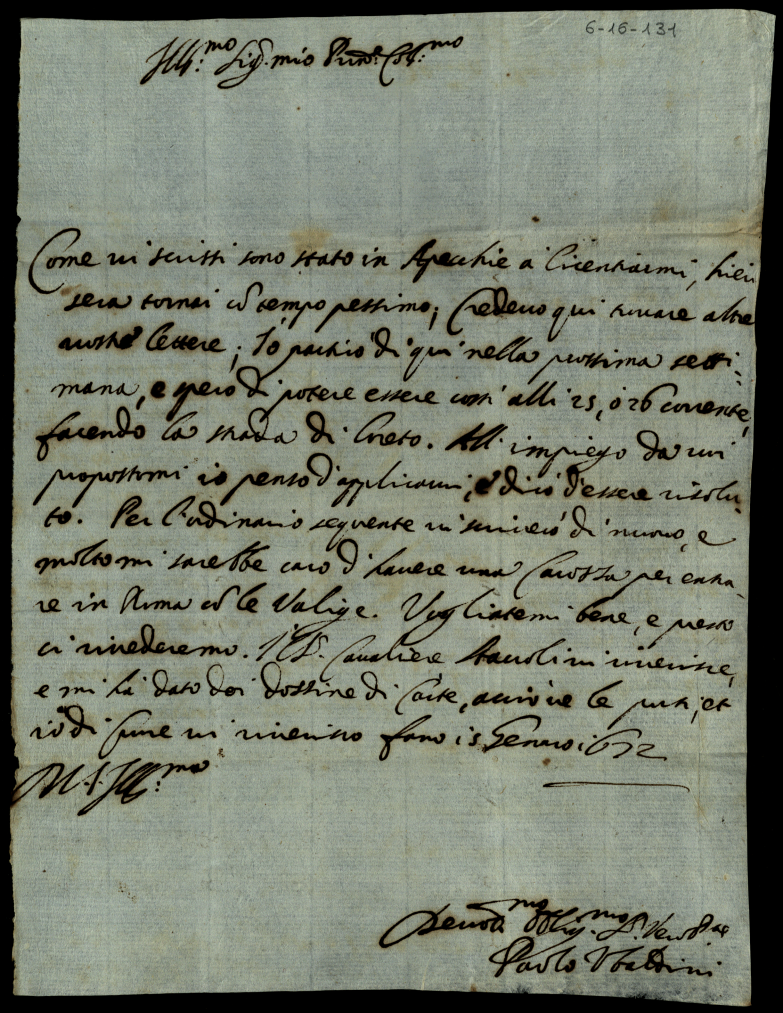 6-16-131
Ill.mo Sig.r mio Pron.e Col.mo
Come vi scrissi sono stato in Apechie à licentiarmi, hieri
sera tornai cõ tempo pessimo; Credevo qui trovare altre
vostre lettere; Io partirò di qui nella prossima setti-
mana, e spero di potere essere costì alli 25, ò 26 corrente,
facendo la strada di Loreto. All'impiego da voi
propostomi io penso d'applicarmi, e dirò d'essere risolu-
to. Per l'ordinario seguente vi scriverò di nuovo, e
molto mi sarebbe caro d'havere una Carozza per entra-
re in Roma cõ le Valige. Vogliatemi bene, e presto
ci rivederemo. Il S.r Cavaliere vi riverisce,
e mi hà dato doi dozzine di carte, acciò ve le porti, et
io di cuore vi riverisco Fano 15 Genaro 1672
V. S. Ill.ma
Devot.mo Oblig.mo S.r Vero
Paolo Ubaldini